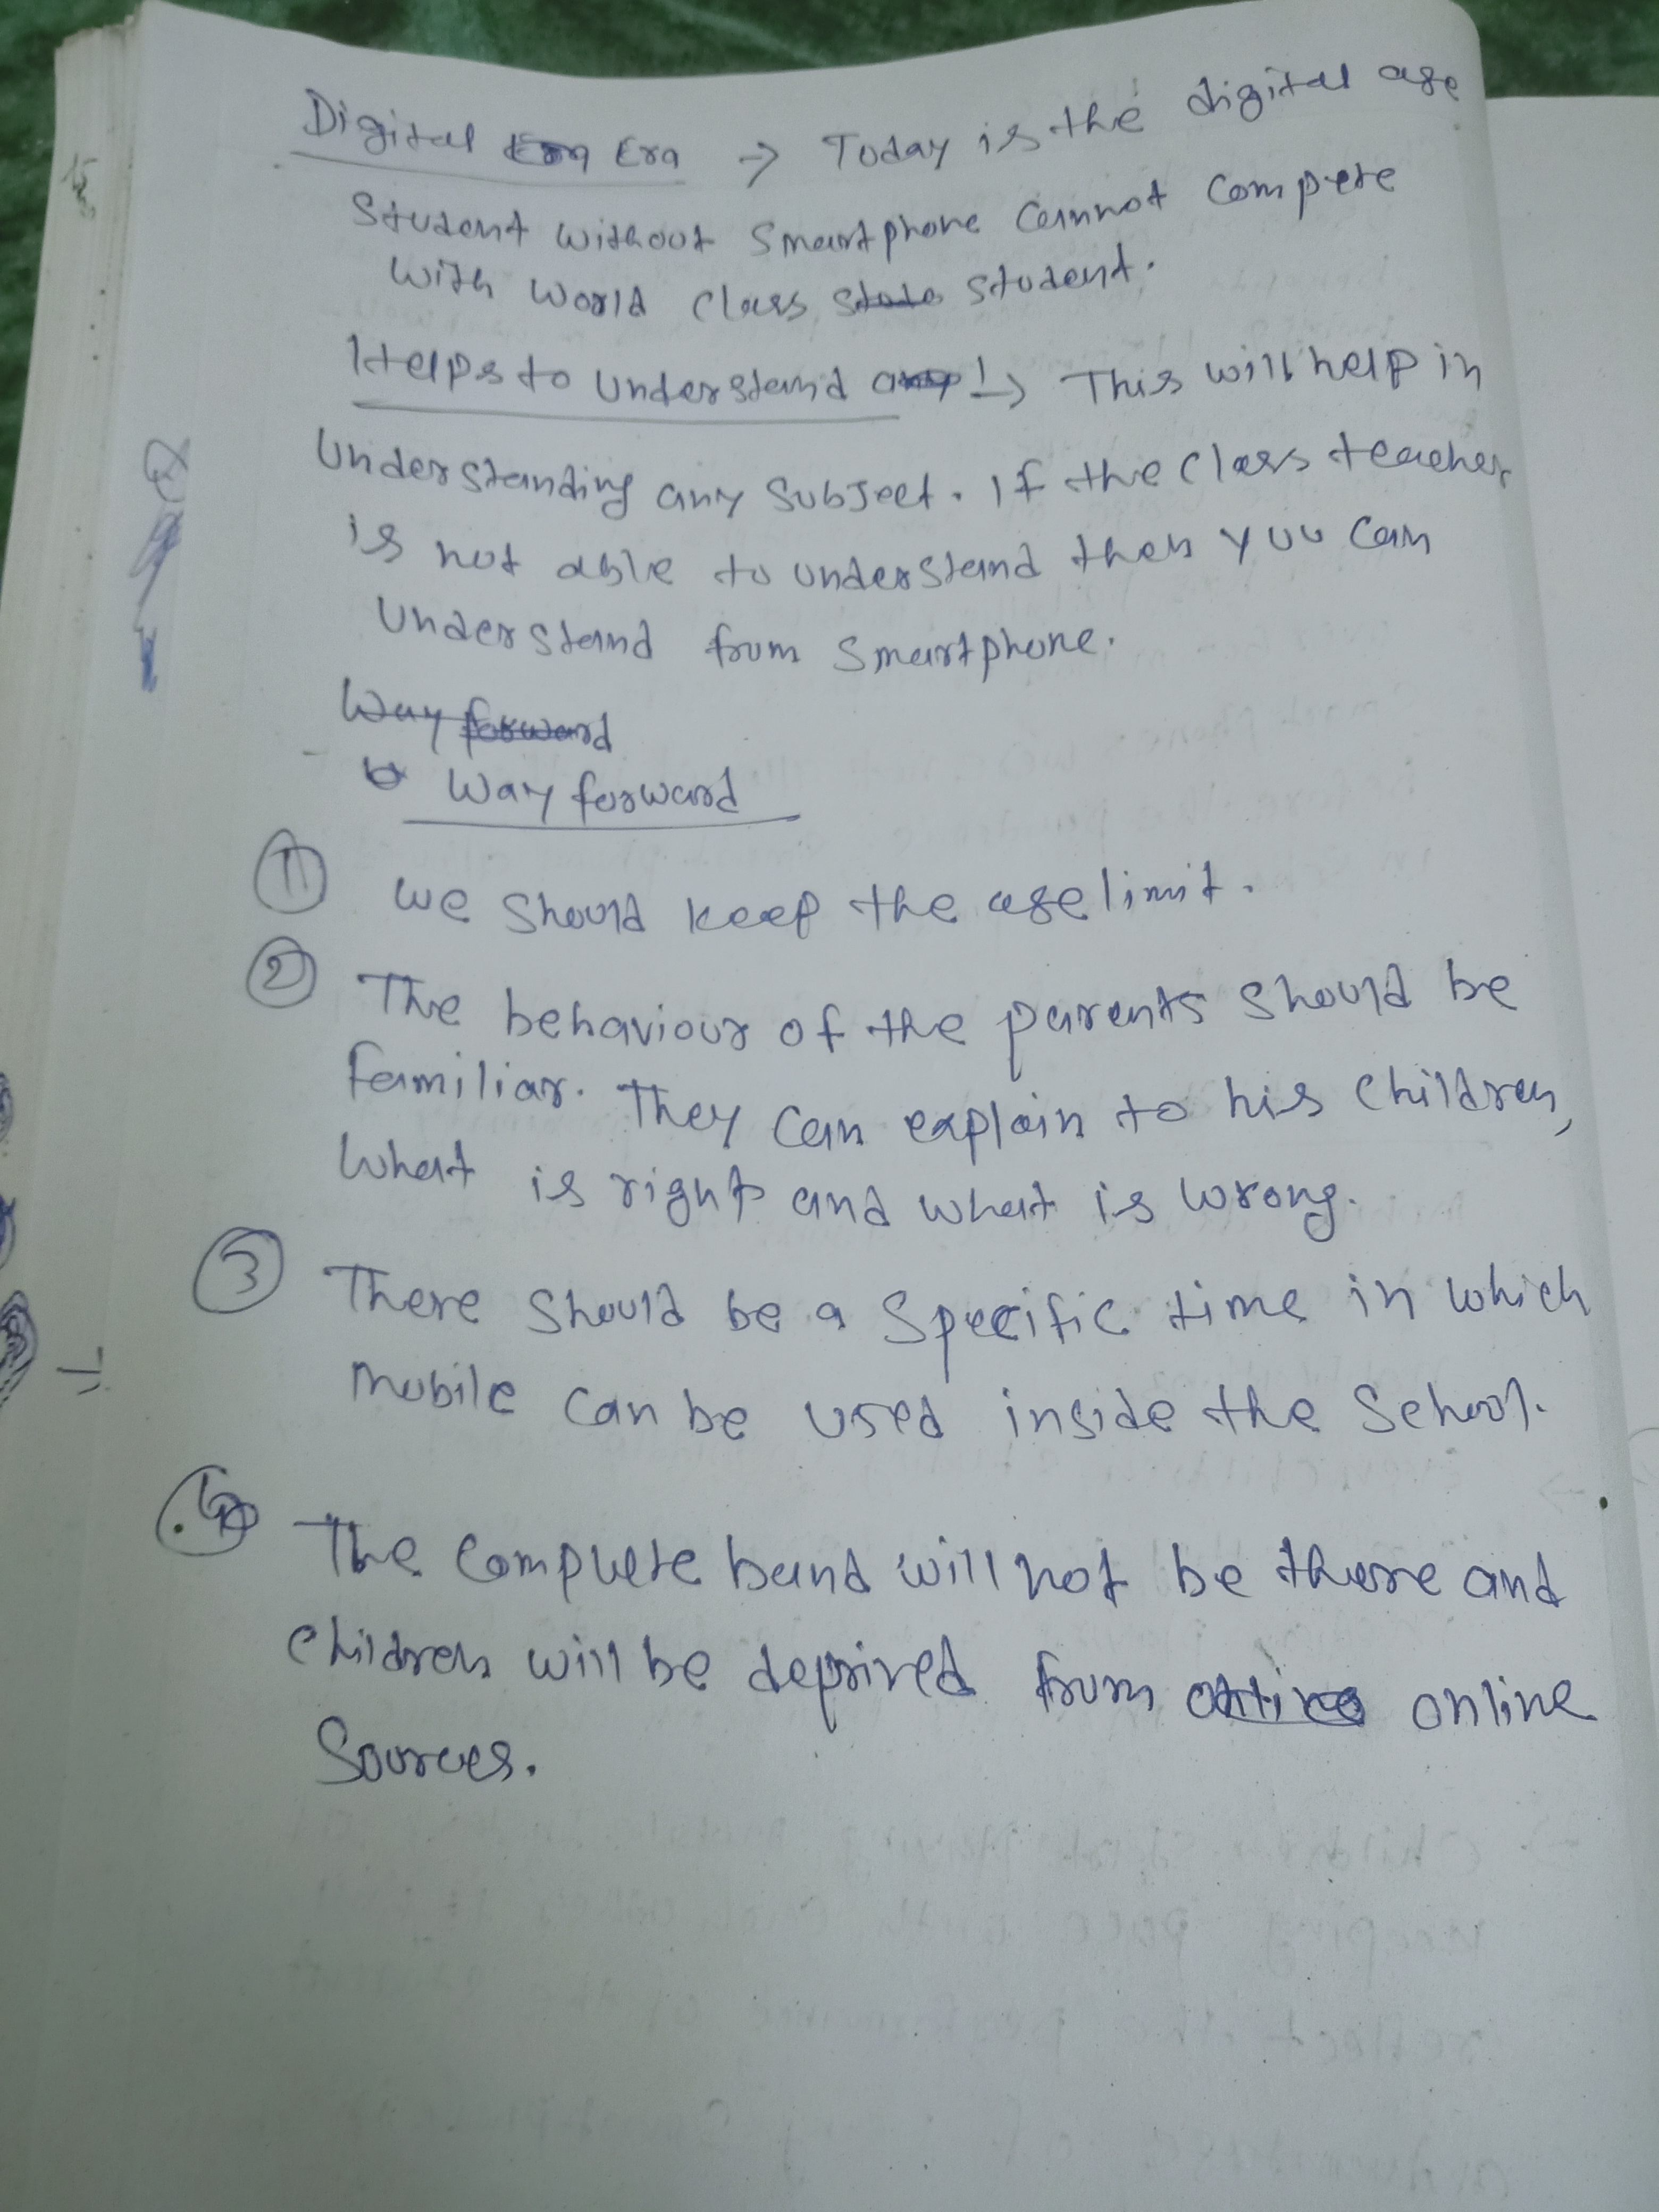 Digital Era → Today is the digital age
Student without Smartphone Cannot Compete
with World Class Student.
Helps to Understand :→ This will help in
Understanding any Subject. If the Class teacher
is not able to understand then you can
Understand from Smartphone.
Way forward
Way forward
① We Should keep the age limit.
② The behaviour of the parents Should be
familiar. They Can explain to his Children,
What is right and what is wrong.
③ There Should be a Specific time in which
Mobile Can be Used inside the School.
④ The Complete band will not be there and
Children will be deprived from online
Sources.